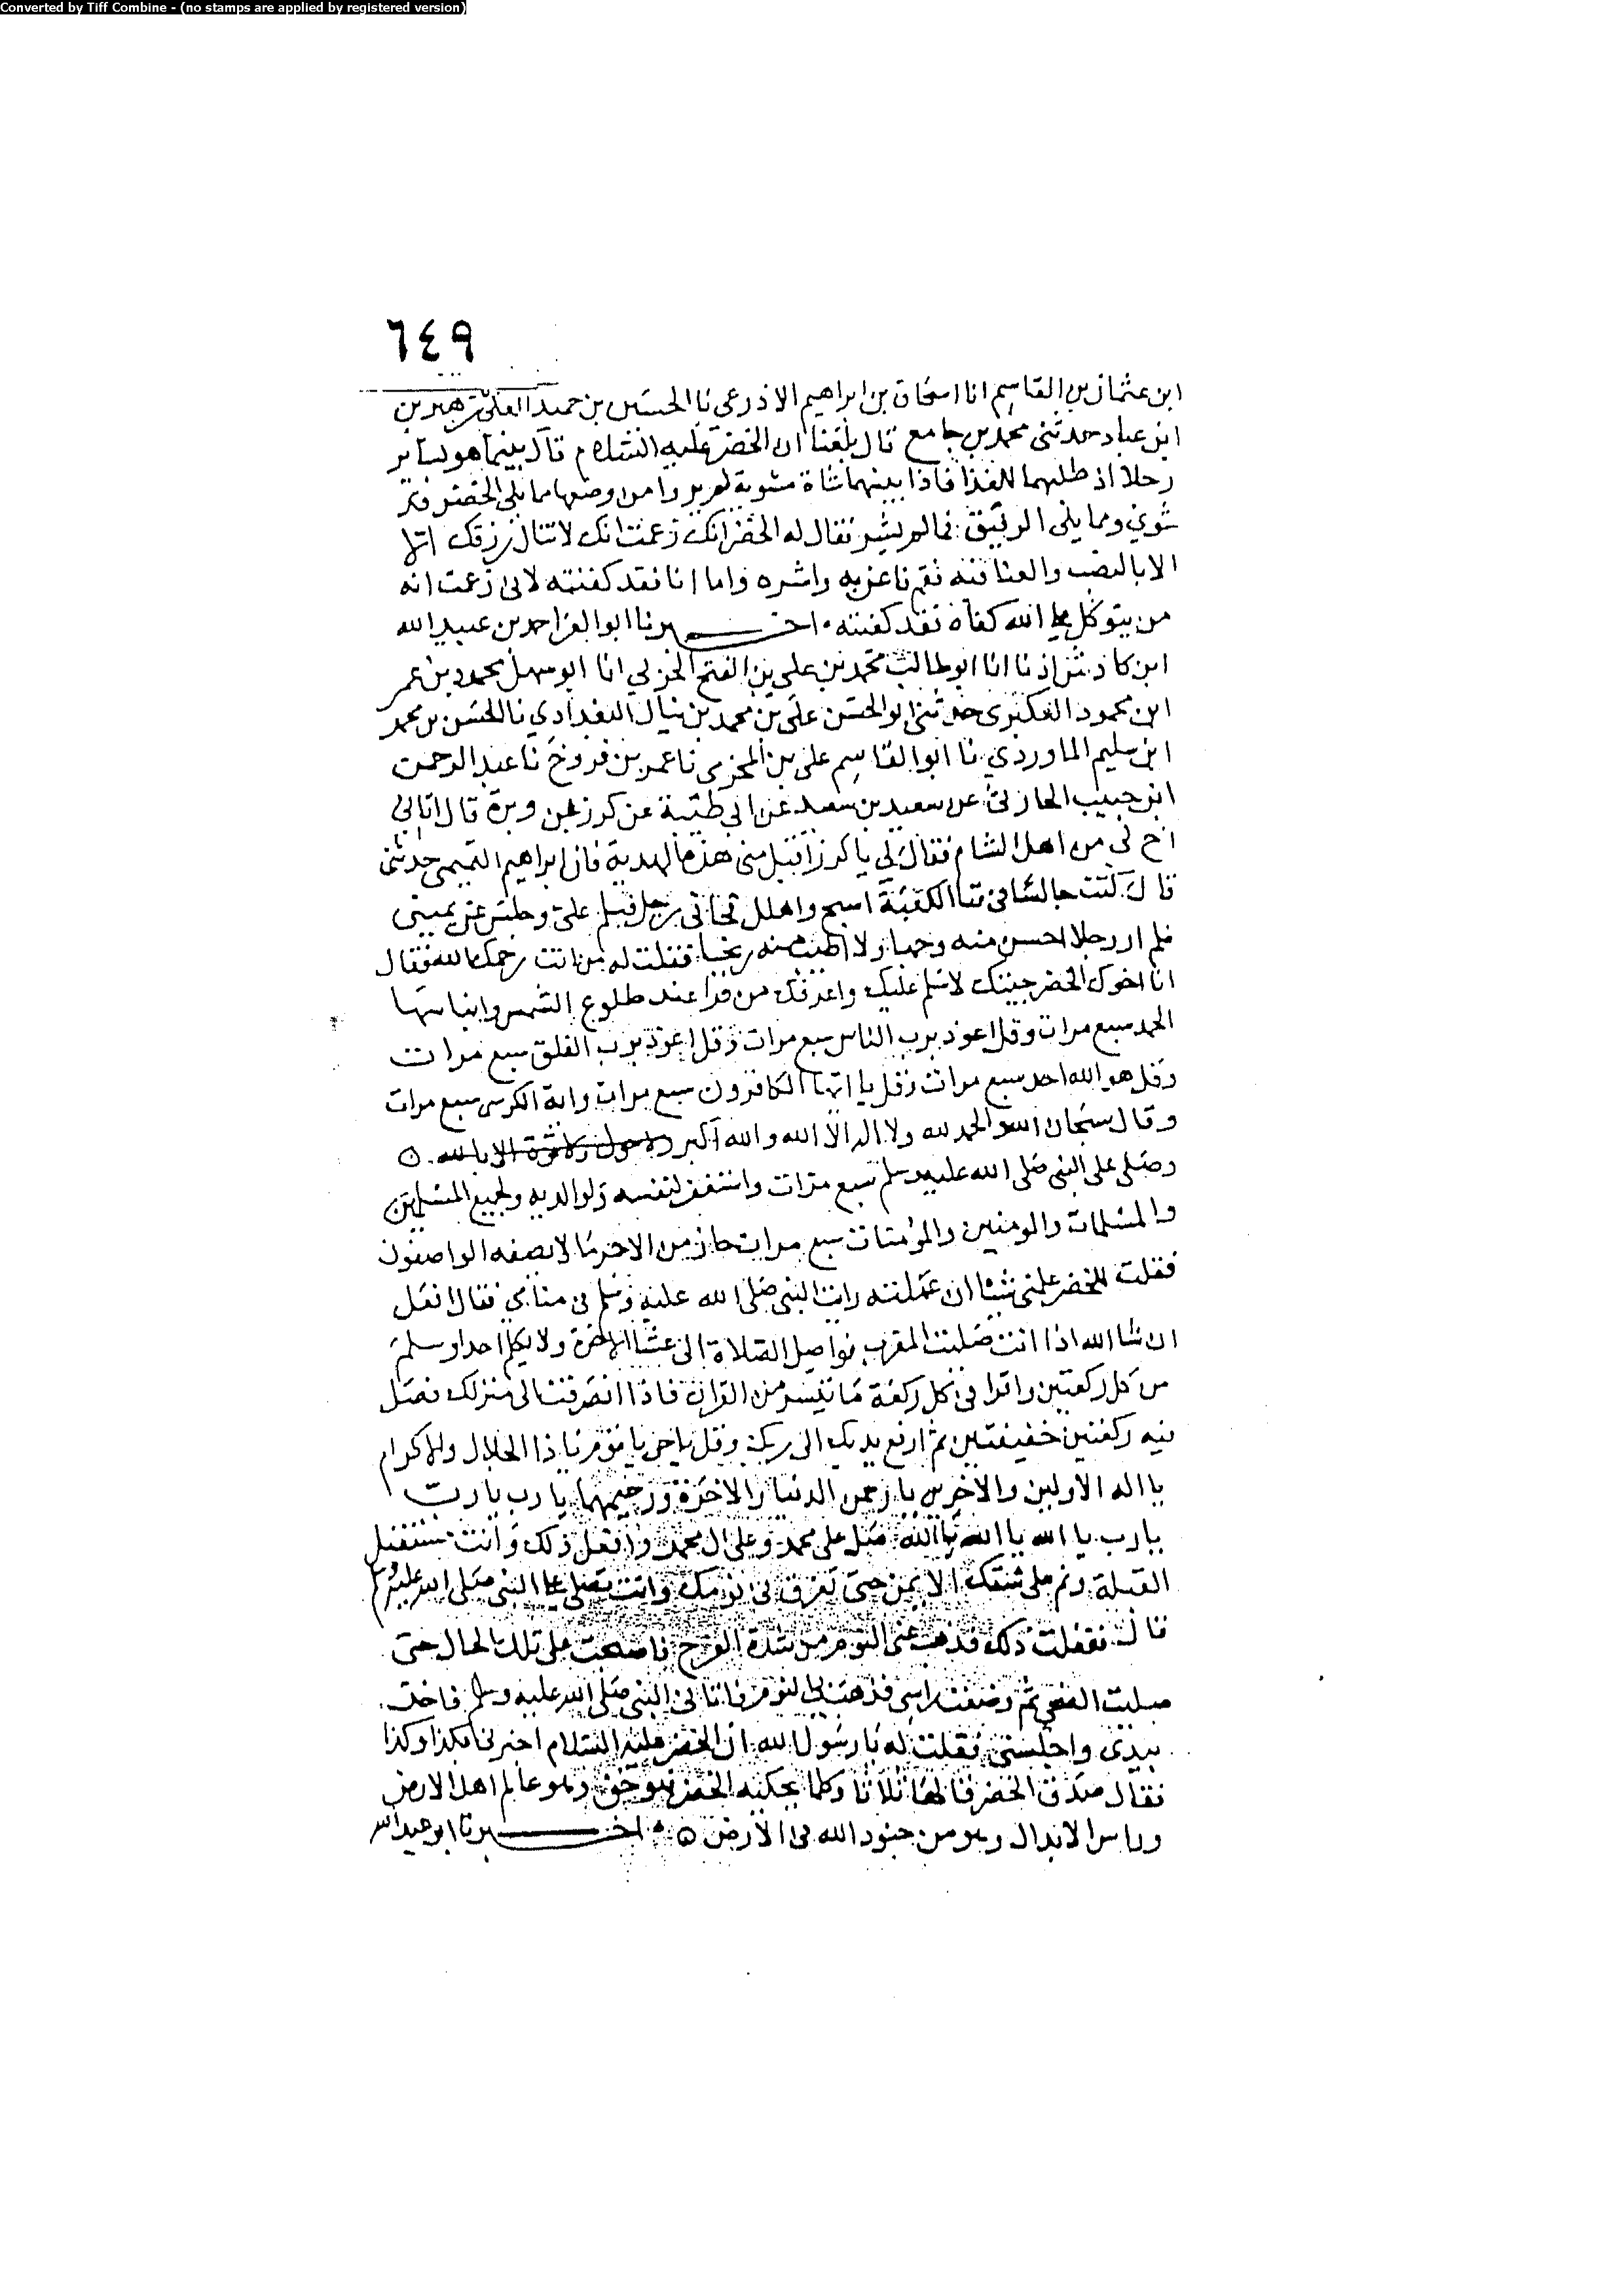 Converted by Tiff Combine - (no stamps are applied by registered version)
٦٤٩
ابن عثمان بن القاسم انا اسحاق بن ابراهيم الاذرعي نا الحسين بن حميد العكي زهير بن
ابن عباد حدثني محمد بن جامع قال بلغنا ان الخضر عليه السلام قال بينما هو يساير
رجلا اذ طلبهما للغذا فاذا بينهما شاة مشوية لم يريا من وضعها مما يلي الخضر قد
شوي ومما يلي الرفيق لم يشو فقال له الخضر انك زعمت انك لا تنال رزقك
الا بالنصب والعنا فيه فقم فاعن به واشوه واما انا فقد كفيته لاني زعمت انه
من يتوكل على الله كفاه فقد كفيته اخبرنا ابو العز احمد بن عبيد الله
ابن كادش اذنا انا ابو طالب محمد بن علي بن الفتح الحربي انا ابو سهل محمود بن عمر
ابن محمود العكبري حدثني ابو الحسن علي بن محمد بن نيال البغدادي نا الحسن بن محمد
ابن سليم الماوردي نا ابو القاسم علي بن المخرمي نا عمر بن فروخ نا عبد الرحمن
ابن حبيب الحارثي عن سعيد بن سعد عن ابي طيبة عن كرز بن وبرة قال اتاني
اخ لي من اهل الشام فقال لي يا كرز اقبل مني هذه الهدية فان ابراهيم التيمي حدثني
قال كنت جالسا في فنا الكعبة اسبح واهلل فجاني رجل فسلم علي وجلس عن يميني
فلم ار رجلا احسن منه وجها ولا اطيب منه ريحا فقلت له من انت رحمك الله فقال
انا اخوك الخضر جيتك لاسلم عليك واعرفك من قرا عند طلوع الشمس وانباسها
الحمد سبع مرات وقل اعوذ برب الناس سبع مرات وقل اعوذ برب الفلق سبع مرات
وقل هو الله احد سبع مرات وقل يا ايها الكافرون سبع مرات واية الكرسي سبع مرات
وقال سبحان الله والحمد لله ولا اله الا الله والله اكبر ولا حول ولا قوة الا بالله
وصلى على النبي صلى الله عليه وسلم سبع مرات واستغفر لنفسه ولوالديه ولجميع المسلمين
والمسلمات والومنين والمؤمنات سبع مرات حاز من الاجر ما لا يصفه الواصفون
فقلت للخضر علمني شيئا ان عملته رايت النبي صلى الله عليه وسلم في منامي فقال افعل
ان شا الله اذا انت صليت المغرب فواصل الصلاة الى عشا الاخرة ولا تكلم احدا وسلم
من كل ركعتين واقرا في كل ركعة ما تيسر من القران فاذا انصرفت الى منزلك فصل
فيه ركعتين خفيفتين ثم ارفع يديك الى ربك وقل يا حي يا قيوم يا ذا الجلال والاكرام
يا اله الاولين والاخرين يا رحمن الدنيا والاخرة ورحيمهما يا رب يا رب
يا رب يا الله يا الله يا الله صل على محمد وعلى ال محمد وافعل ذلك وانت مستقبل
القبلة ونم على شقك الايمن حتى تغرق في نومك وانت تصلي على النبي صلى الله عليه وسلم
قال ففعلت ذلك فذهب عني النوم من شدة الفرح فاصبحت على تلك الحال حتى
صليت الضحى ثم وضعت راسي فذهب بي النوم فاتاني النبي صلى الله عليه وسلم فاخذ
بيدي واجلسني فقلت له يا رسول الله ان الخضر عليه السلام اخبرني بكذا وكذا
فقال صدق الخضر قالها ثلاثا وكلما يحكيه الخضر فهو حق وهو عالم اهل الارض
وراس الابدال وهو من جنود الله في الارض اخبرنا ابو عبد الله